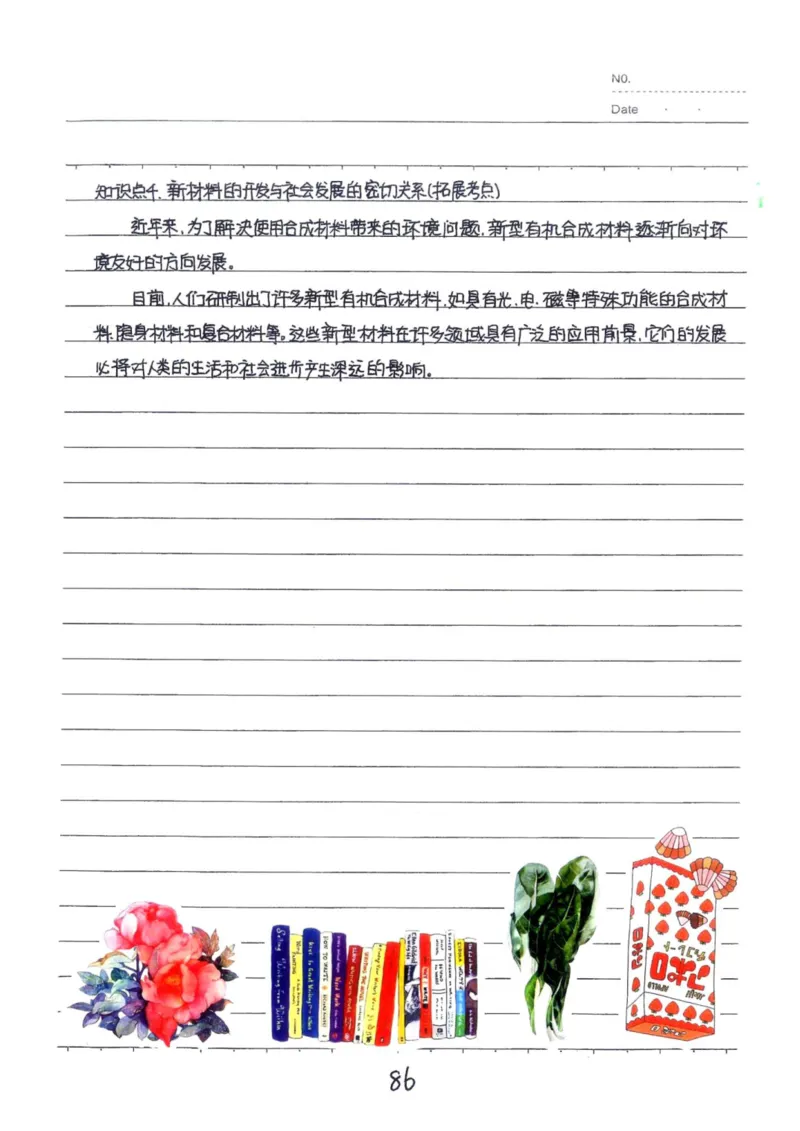 NO.
Date
知识点4.新材料的开发与社会发展的密切关系(拓展考点)
近年来,为了解决使用合成材料带来的环境问题,新型有机合成材料逐渐向对环
境友好的方向发展。
目前,人们研制出了许多新型有机合成材料,如具有光、电、磁等特殊功能的合成材
料,隐身材料和复合材料等。这些新型材料在许多领域具有广泛的应用前景,它们的发展
必将对人类的生活和社会进步产生深远的影响。
86